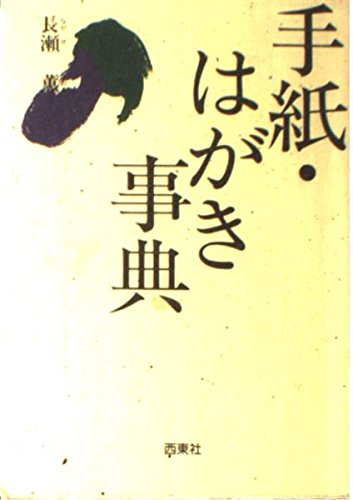 手紙・
はがき
事典
長瀬 薫
西東社